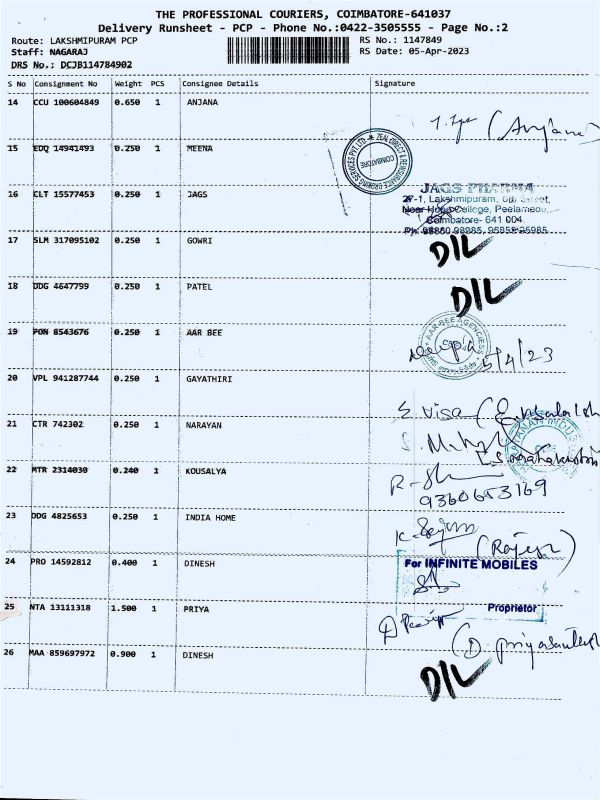 THE PROFESSIONAL COURIERS, COIMBATORE-641037
Delivery Runsheet - PCP - Phone No.:0422-3505555 - Page No.:2
Route: LAKSHMIPURAM PCP RS No.: 1147849
Staff: NAGARAJ RS Date: 05-Apr-2023
DRS No.: DCJB114784902
S No Consignment No Weight PCS Consignee Details Signature
14 CCU 100604849 0.650 1 ANJANA
(Anjana)
15 EDQ 14941493 0.250 1 MEENA
COIMBATORE
16 CLT 15577453 0.250 1 JAGS
JAGS PHARMA
27-1, Lakshmipuram, 6th Street,
College, Peelamedu,
Coimbatore- 641 004.
17 SLM 317095102 0.250 1 GOWRI
D/L
18 DDG 4647799 0.250 1 PATEL
D/L
19 PON 8543676 0.250 1 AAR BEE
AAR BEE AGENCIES
5/4/23
20 VPL 941287744 0.250 1 GAYATHIRI
21 CTR 742302 0.250 1 NARAYAN
22 MTR 2314030 0.240 1 KOUSALYA
9360653169
23 DDG 4825653 0.250 1 INDIA HOME
24 PRO 14592812 0.400 1 DINESH
For INFINITE MOBILES
Proprietor
25 NTA 13111318 1.500 1 PRIYA
26 MAA 859697972 0.900 1 DINESH
D/L